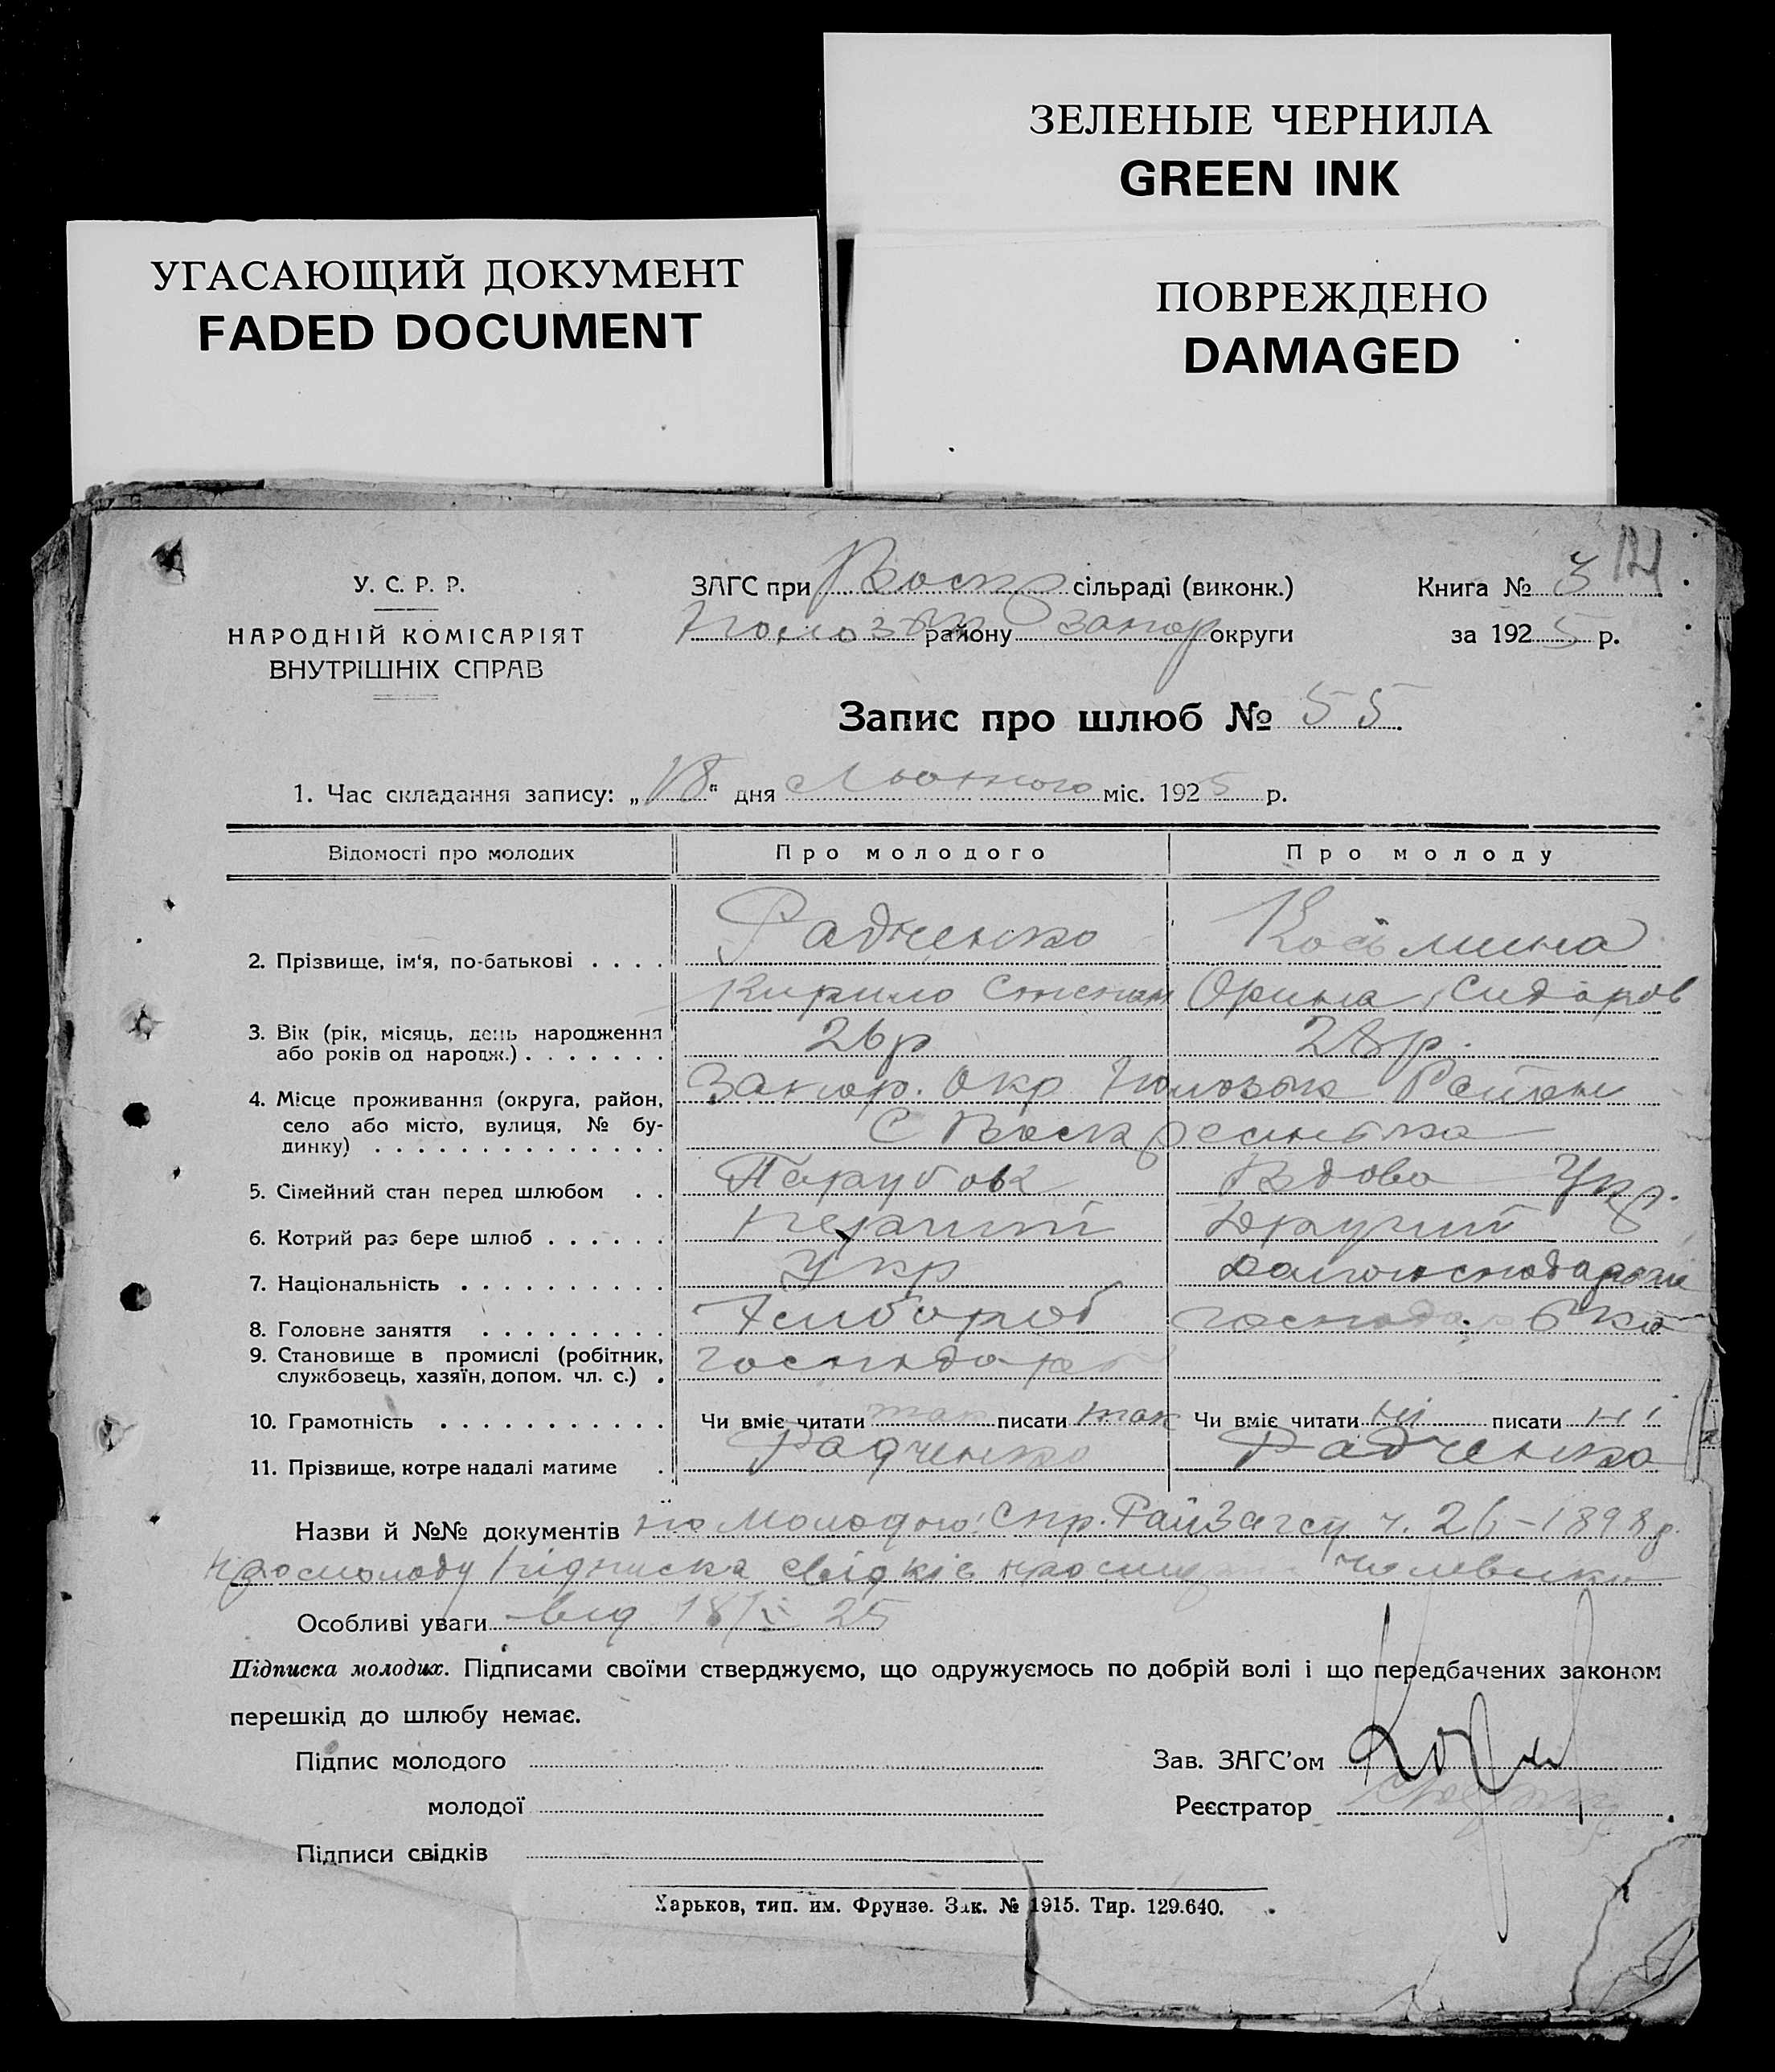 ЗЕЛЕНЫЕ ЧЕРНИЛА
GREEN INK
УГАСАЮЩИЙ ДОКУМЕНТ
FADED DOCUMENT
ПОВРЕЖДЕНО
DAMAGED
У. С. Р. Р.
НАРОДНІЙ КОМІСАРІЯТ
ВНУТРІШНІХ СПРАВ
ЗАГС при Воскр сільраді (виконк.)
району Запор округи
Книга № 3
за 1925 р.
Запис про шлюб № 55
1. Час складання запису: „18" дня Лютого міс. 1925 р.
Відомості про молодих Про молодого Про молоду
2. Прізвище, ім'я, по-батькові . . . . Радченко Косьмина
Кирило Степан Орина Сидоров
3. Вік (рік, місяць, день народження або років од народж.) . . . . . . . 26 р 28 р.
4. Місце проживання (округа, район, село або місто, вулиця, № будинку) . . . . . . . . . . . . . . Запор. Окр Район
С
5. Сімейний стан перед шлюбом . . Парубок Вдова Укр.
6. Котрий раз бере шлюб . . . . . . перший Другий
7. Національність . . . . . . . . . . Укр
8. Головне заняття . . . . . . . . . Хлібороб
9. Становище в промислі (робітник, службовець, хазяїн, допом. чл. с.) . господар
10. Грамотність . . . . . . . . . . . Чи вміє читати так писати так Чи вміє читати ні писати ні
11. Прізвище, котре надалі матиме . Радченко Радченко
Назви й №№ документів молодого: Спр. РайЗагсу ч. 26-1898 р.
про молоду підписка свідків
Особливі уваги від 18/ 25
Підписка молодих. Підписами своїми стверджуємо, що одружуємось по добрій волі і що передбачених законом
перешкід до шлюбу немає.
Підпис молодого
Зав. ЗАГС'ом
молодої
Реєстратор
Підписи свідків
Харьков, тип. им. Фрунзе. Зак. № 1915. Тир. 129.640.